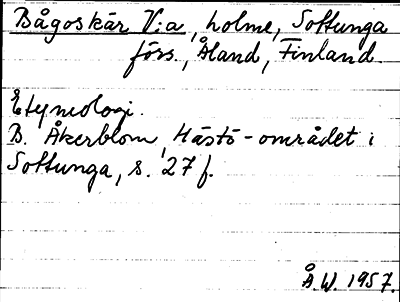 Bågoskär V:a, holme, Sottunga
förs., Åland, Finland.
Etymologi.
B. Åkerblom, Hästö-området i
Sottunga, s. 27 f.
Å.W. 1957.